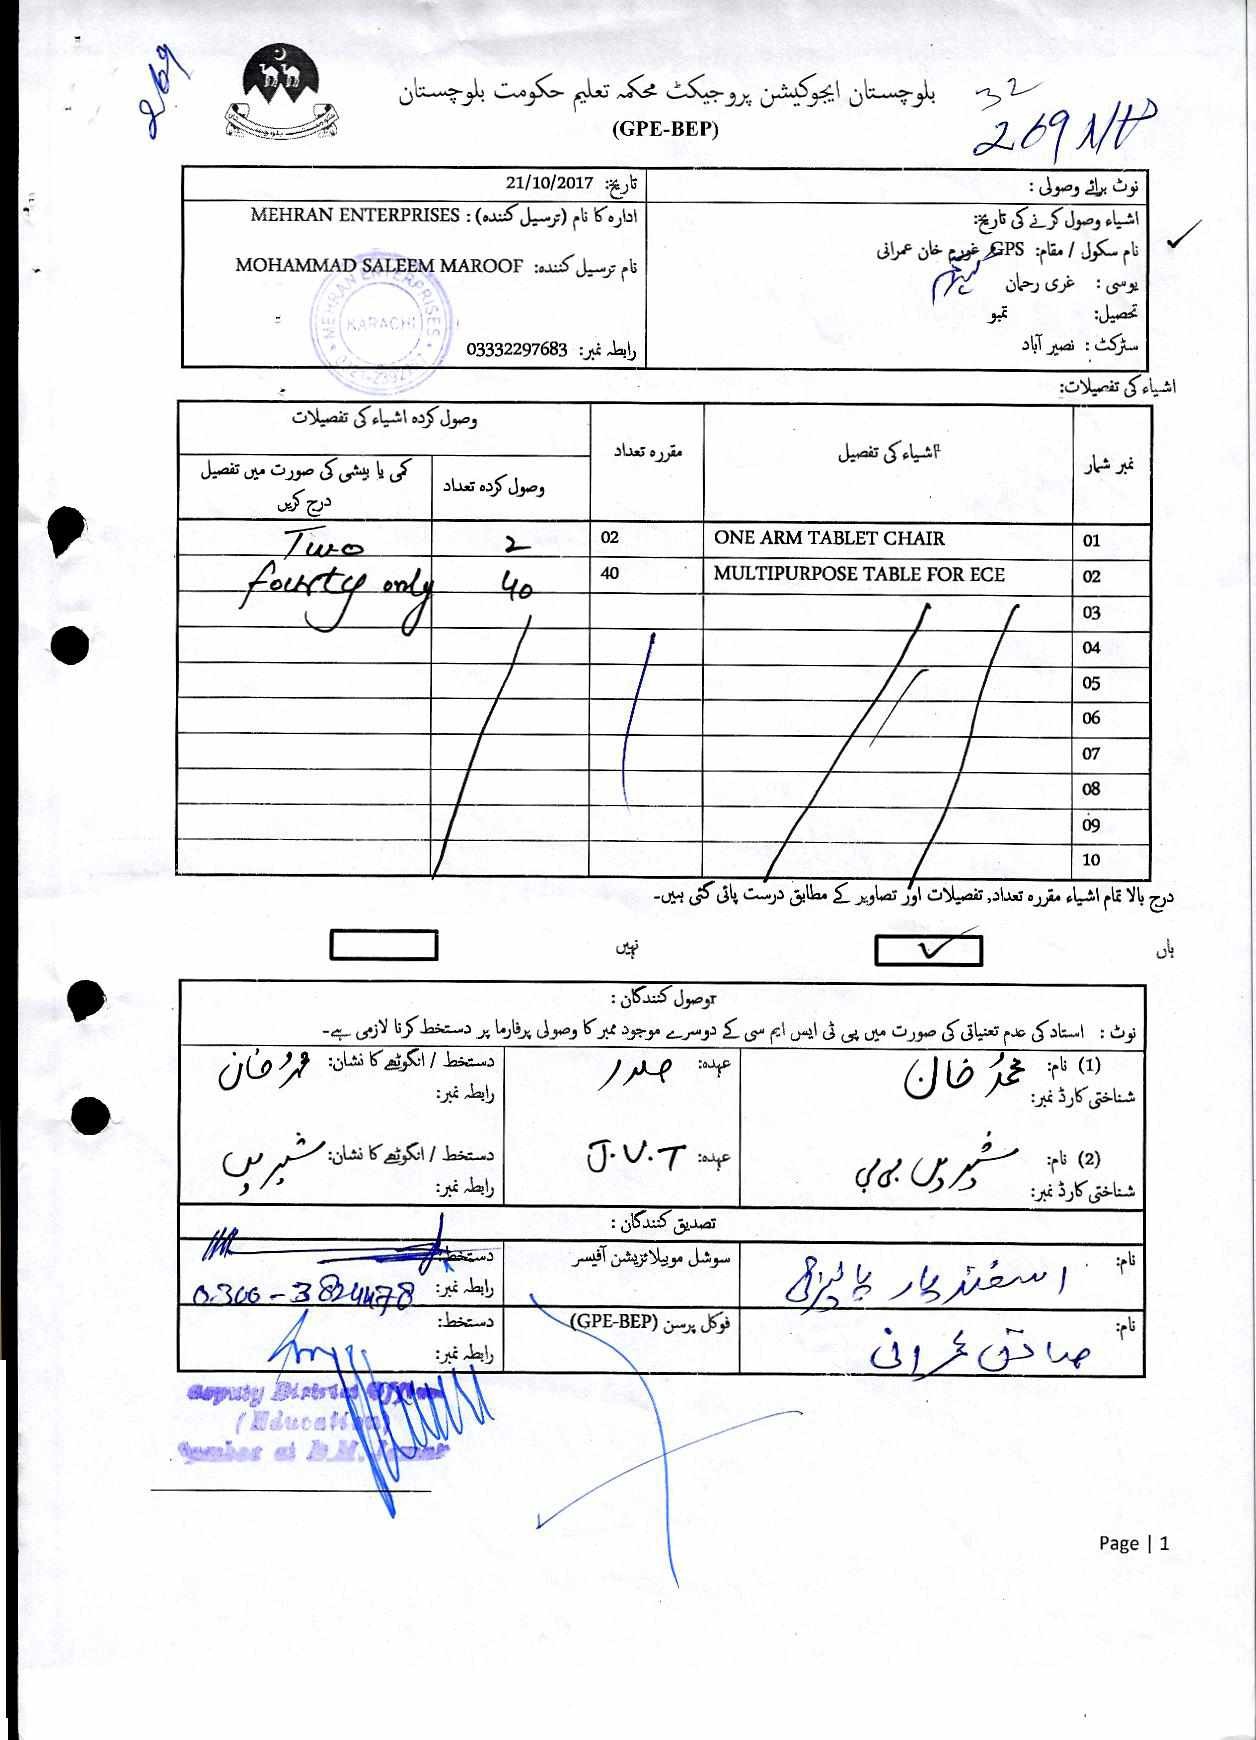 269
بلوچستان ایجوکیشن پروجیکٹ محکمہ تعلیم حکومت بلوچستان
(GPE-BEP)
32
269 N/P
نوٹ برائے وصولی :
تاریخ: 21/10/2017
اشیاء وصول کرنے کی تاریخ:
نام سکول / مقام: GPS خان عمرانی
یوسی : غری رحمان
تحصیل: تمبو
سٹرکٹ : نصیر آباد
ادارہ کا نام (ترسیل کنندہ) : MEHRAN ENTERPRISES
نام ترسیل کنندہ: MOHAMMAD SALEEM MAROOF
رابطہ نمبر: 03332297683
MEHRAN ENTERPRISES
KARACHI
اشیاء کی تفصیلات:
نمبر شمار
اشیاء کی تفصیل
مقررہ تعداد
وصول کردہ اشیاء کی تفصیلات
وصول کردہ تعداد
کمی یا بیشی کی صورت میں تفصیل
درج کریں
01 ONE ARM TABLET CHAIR 02 2 Two
02 MULTIPURPOSE TABLE FOR ECE 40 40 fourty only
03
04
05
06
07
08
09
10
درج بالا تمام اشیاء مقررہ تعداد, تفصیلات اور تصاویر کے مطابق درست پائی گئی ہیں۔
ہاں ✓ نہیں
وصول کنندگان :
نوٹ : استاد کی عدم تعنیاتی کی صورت میں پی ٹی ایس ایم سی کے دوسرے موجود ممبر کا وصولی پرفارما پر دستخط کرنا لازمی ہے۔
(1) نام: محمد خان عہدہ: صدر دستخط / انگوٹھے کا نشان: محمد خان
شناختی کارڈ نمبر: رابطہ نمبر:
(2) نام: شیریں بی بی عہدہ: J.V.T دستخط / انگوٹھے کا نشان: شیریں
شناختی کارڈ نمبر: رابطہ نمبر:
تصدیق کنندگان :
نام: اسفندیار سوشل موبیلائزیشن آفیسر دستخط:
رابطہ نمبر: 0300-3824478
نام: صادق عمرانی فوکل پرسن (GPE-BEP) دستخط:
رابطہ نمبر:
Deputy District Officer
(Education)
Page | 1